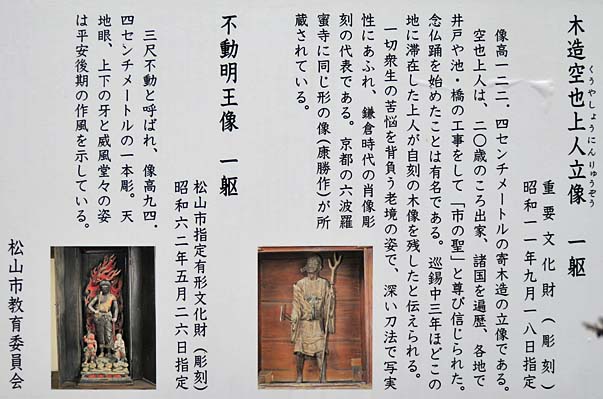 木造空也上人立像　一躯
くうやしょうにんりゅうぞう
重要文化財（彫刻）
昭和一一年九月一八日指定
像高一二二．四センチメートルの寄木造の立像である。
空也上人は、二〇歳のころ出家、諸国を遍歴、各地で
井戸や池・橋の工事をして「市の聖」と尊び信じられた。
念仏踊を始めたことは有名である。巡錫中三年ほどこの
地に滞在した上人が自刻の木像を残したと伝えられる。
一切衆生の苦悩を背負う老境の姿で、深い刀法で写実
性にあふれ、鎌倉時代の肖像彫
刻の代表である。京都の六波羅
蜜寺に同じ形の像（康勝作）が所
蔵されている。
不動明王像　一躯
松山市指定有形文化財（彫刻）
昭和六二年五月二六日指定
三尺不動と呼ばれ、像高九四．
四センチメートルの一本彫。天
地眼、上下の牙と威風堂々の姿
は平安後期の作風を示している。
松山市教育委員会